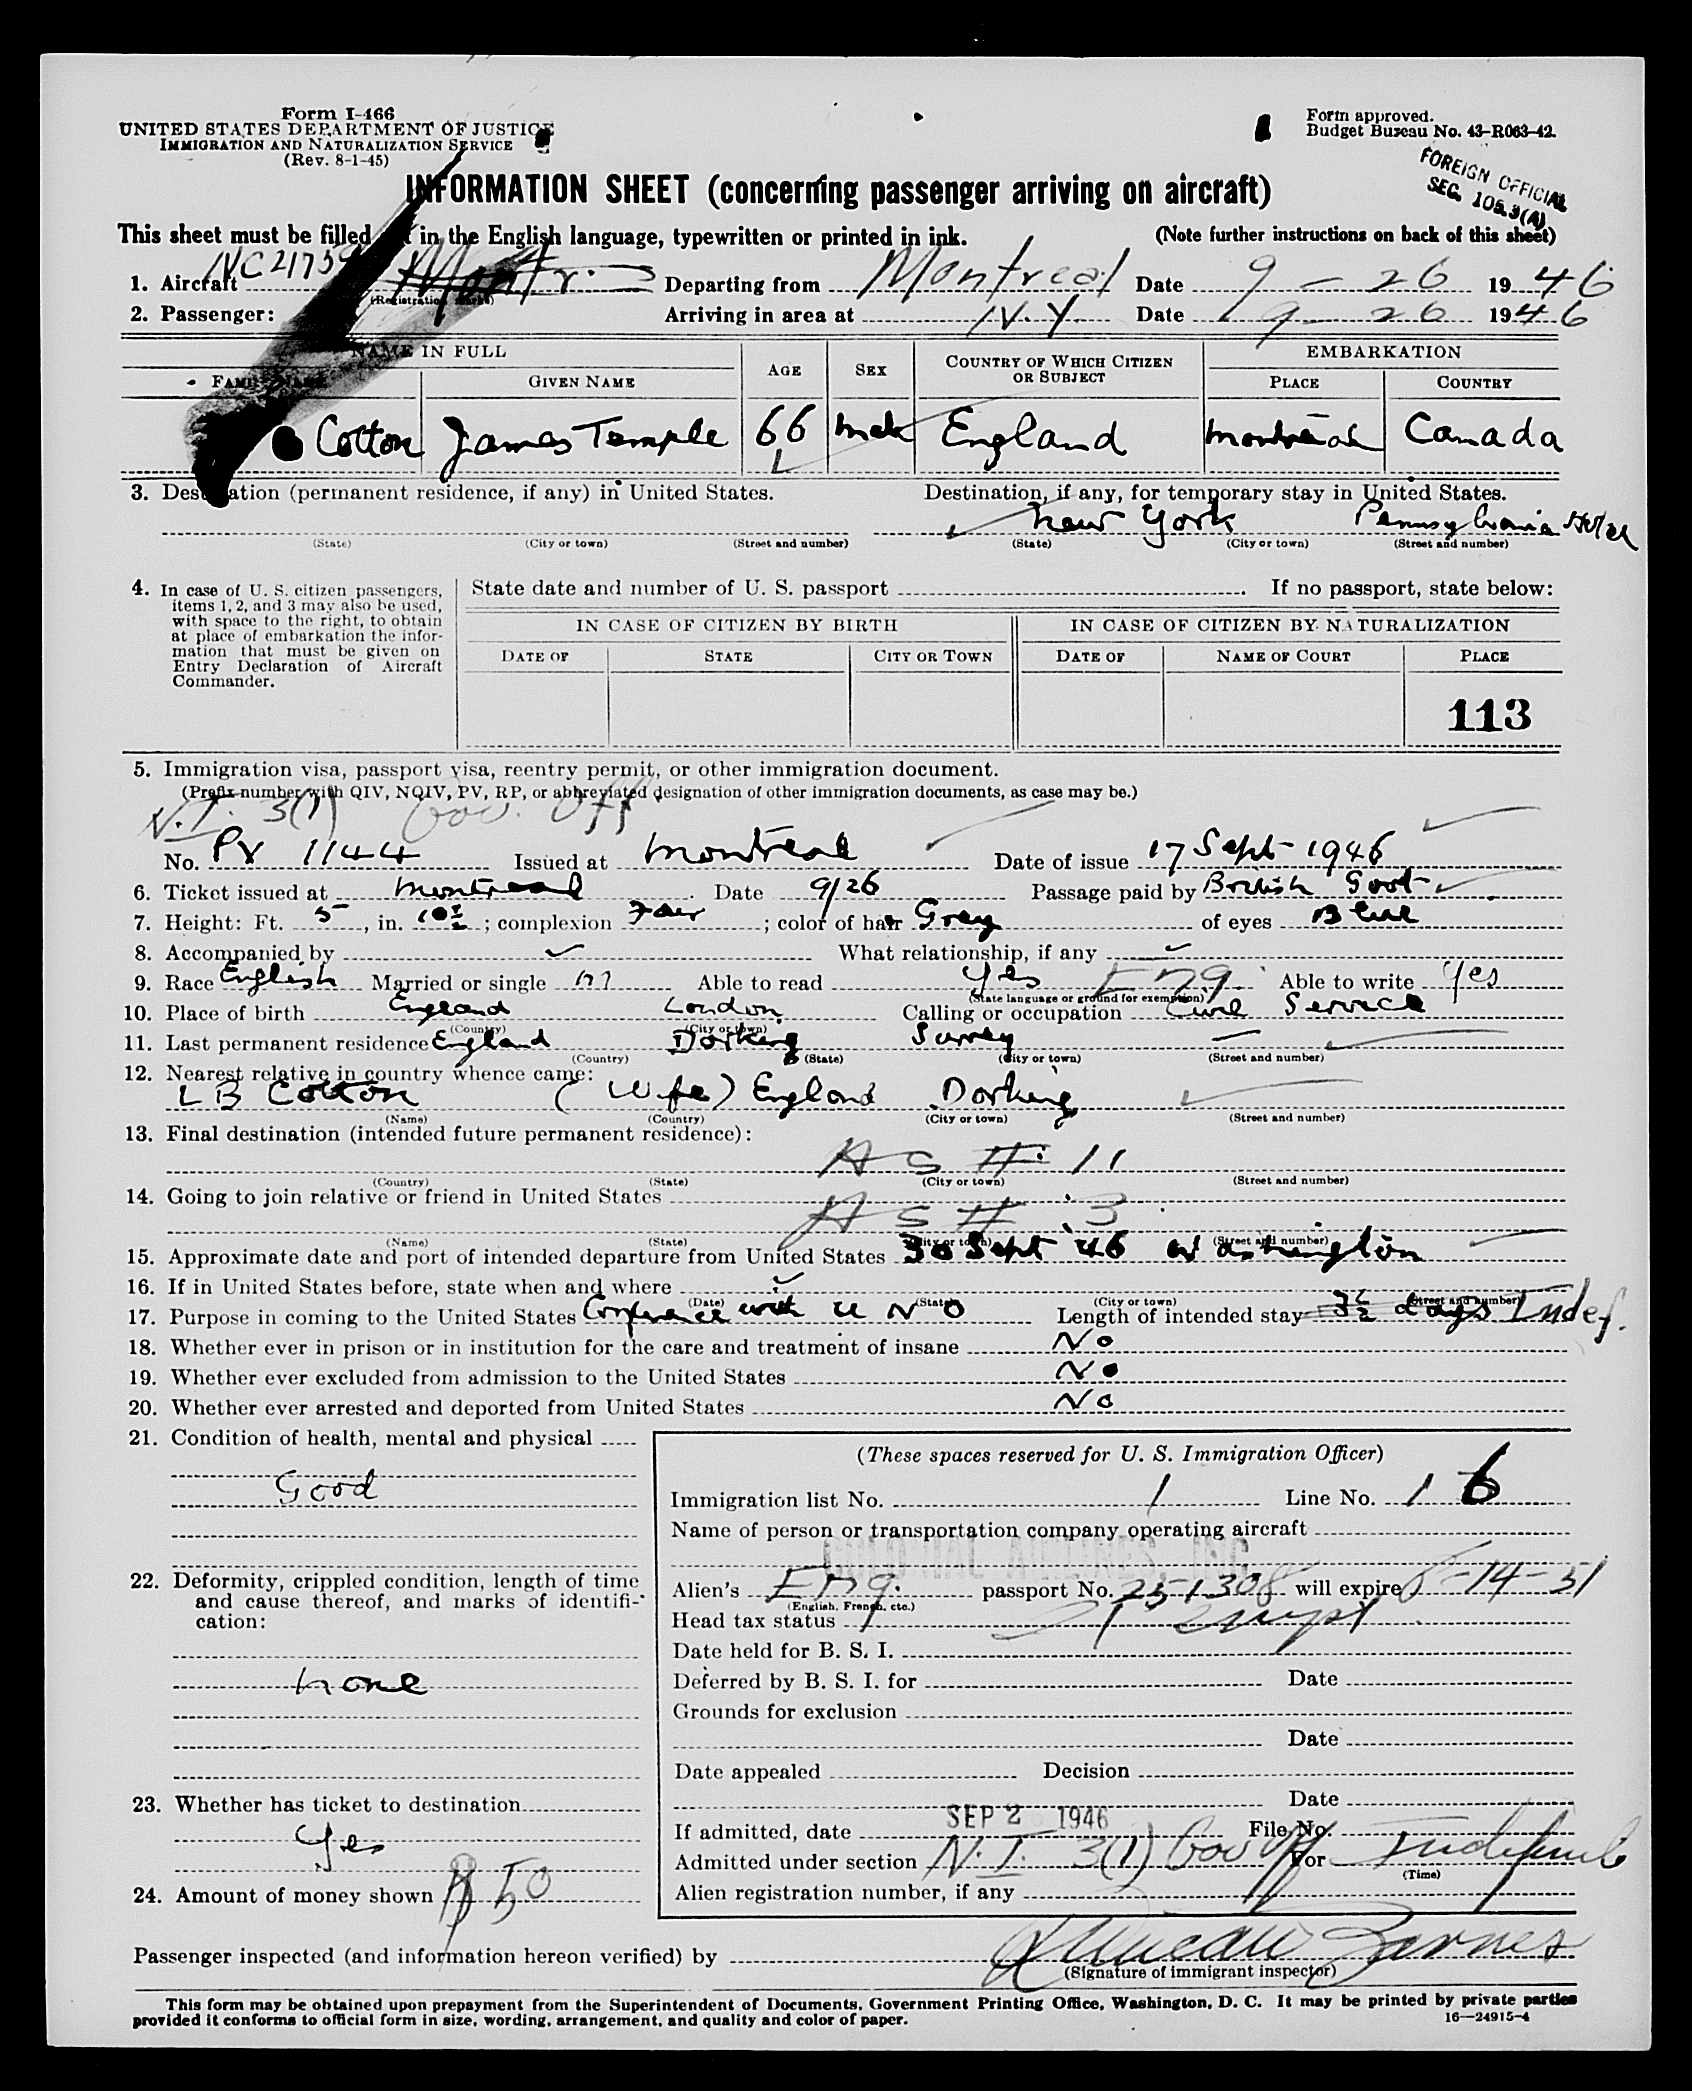 Form I-466
UNITED STATES DEPARTMENT OF JUSTICE
IMMIGRATION AND NATURALIZATION SERVICE
(Rev. 8-1-45)
Form approved.
Budget Bureau No. 43-R063-42.
FOREIGN OFFICIAL
SEC. 105.3(A)
INFORMATION SHEET (concerning passenger arriving on aircraft)
This sheet must be filled in the English language, typewritten or printed in ink. (Note further instructions on back of this sheet)
1. Aircraft NC21739 Montr Departing from Montreal Date 9 - 26 1946
(Registration marks)
2. Passenger: Arriving in area at N.Y. Date 9 - 26 1946
NAME IN FULL AGE SEX COUNTRY OF WHICH CITIZEN OR SUBJECT EMBARKATION
FAMILY NAME GIVEN NAME PLACE COUNTRY
Cotton James Temple 66 male England Montreal Canada
3. Destination (permanent residence, if any) in United States. Destination, if any, for temporary stay in United States.
New York Pennsylvania Hotel
(State) (City or town) (Street and number) (State) (City or town) (Street and number)
4. In case of U. S. citizen passengers, items 1, 2, and 3 may also be used, with space to the right, to obtain at place of embarkation the information that must be given on Entry Declaration of Aircraft Commander.
State date and number of U. S. passport . If no passport, state below:
IN CASE OF CITIZEN BY BIRTH IN CASE OF CITIZEN BY NATURALIZATION
DATE OF STATE CITY OR TOWN DATE OF NAME OF COURT PLACE
113
5. Immigration visa, passport visa, reentry permit, or other immigration document.
(Prefix number with QIV, NQIV, PV, RP, or abbreviated designation of other immigration documents, as case may be.)
N.I. 3(1) Gov. Off
No. PV 1144 Issued at Montreal Date of issue 17 Sept 1946
6. Ticket issued at Montreal Date 9/26 Passage paid by British Govt
7. Height: Ft. 5, in. 10½; complexion Fair; color of hair Grey of eyes Blue
8. Accompanied by What relationship, if any
9. Race English Married or single M Able to read Yes Eng. Able to write Yes
(State language or ground for exemption)
10. Place of birth England London Calling or occupation Civil Service
(Country) (City or town)
11. Last permanent residence England Dorking Surrey
(Country) (State) (City or town) (Street and number)
12. Nearest relative in country whence came:
L B Cotton (Wife) England Dorking
(Name) (Country) (City or town) (Street and number)
13. Final destination (intended future permanent residence):
As #11
(Country) (State) (City or town) (Street and number)
14. Going to join relative or friend in United States
As #3
(Name) (State) (City or town) (Street and number)
15. Approximate date and port of intended departure from United States 30 Sept 46 Washington
16. If in United States before, state when and where
(Date) (State) (City or town) (Street and number)
17. Purpose in coming to the United States Conference with U N O Length of intended stay days Indef.
18. Whether ever in prison or in institution for the care and treatment of insane No
19. Whether ever excluded from admission to the United States No
20. Whether ever arrested and deported from United States No
21. Condition of health, mental and physical
Good
22. Deformity, crippled condition, length of time and cause thereof, and marks of identification:
None
23. Whether has ticket to destination
Yes
24. Amount of money shown $50
(These spaces reserved for U. S. Immigration Officer)
Immigration list No. 1 Line No. 16
Name of person or transportation company operating aircraft
COLONIAL AIRLINES, INC.
Alien's Eng. passport No. 251308 will expire 6-14-51
(English, French, etc.)
Head tax status Exempt
Date held for B. S. I.
Deferred by B. S. I. for Date
Grounds for exclusion
Date
Date appealed Decision
Date
If admitted, date SEP 2 1946 File No.
Admitted under section N.I. 3(1) Gov Off For Indefinite
(Time)
Alien registration number, if any
Passenger inspected (and information hereon verified) by Barnes
(Signature of immigrant inspector)
This form may be obtained upon prepayment from the Superintendent of Documents, Government Printing Office, Washington, D. C. It may be printed by private parties
provided it conforms to official form in size, wording, arrangement, and quality and color of paper.
16—24915-4